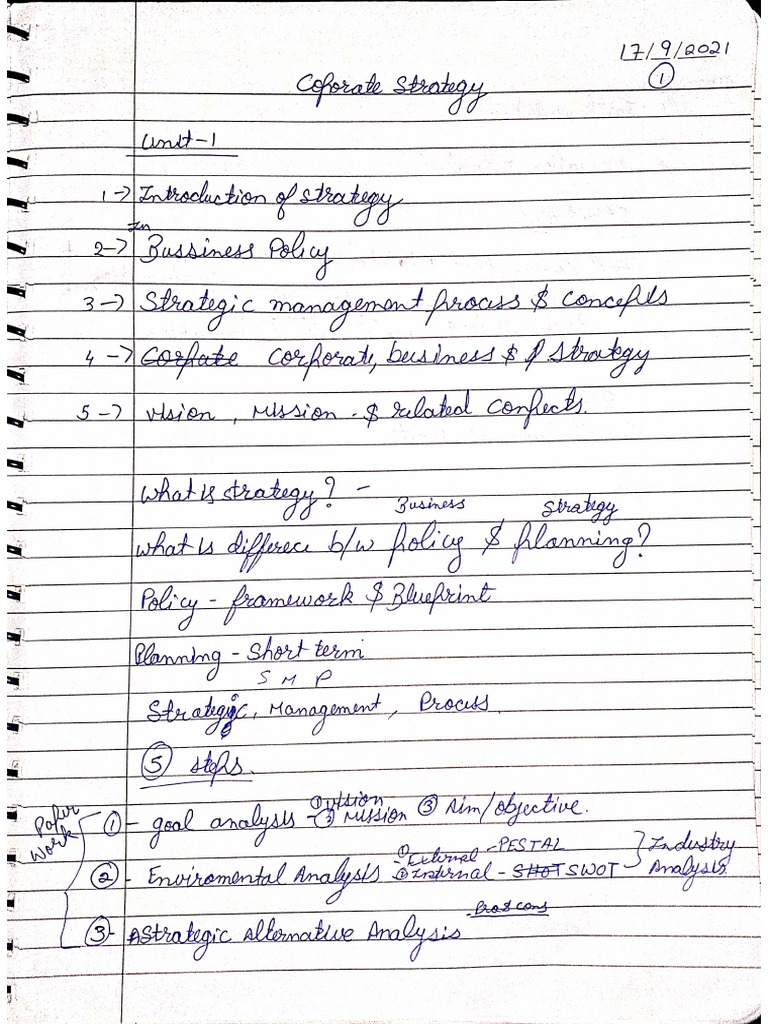 17/9/2021
①
Coporate Strategy
Unit-1
1-> Introduction of strategy
In
2-> Bussiness Policy
3-> Strategic management process & concepts
4-> Corpate Corporate, business & f strategy
5-> vision, Mission & related concepts.
What is strategy? -
Business Strategy
What is differece b/w policy & planning?
Policy - framework & Blueprint
Planning - Short term
S M P
Strategic, Management, Process.
⑤ steps.
Paper Work
① - goal analysis - ① vision ② Mission ③ Aim/objective.
② - Enviromental Analysis ① External - PESTAL ② Internal - SHOT SWOT Industry Analysis.
Pros & cons
③ - Strategic Alternative Analysis